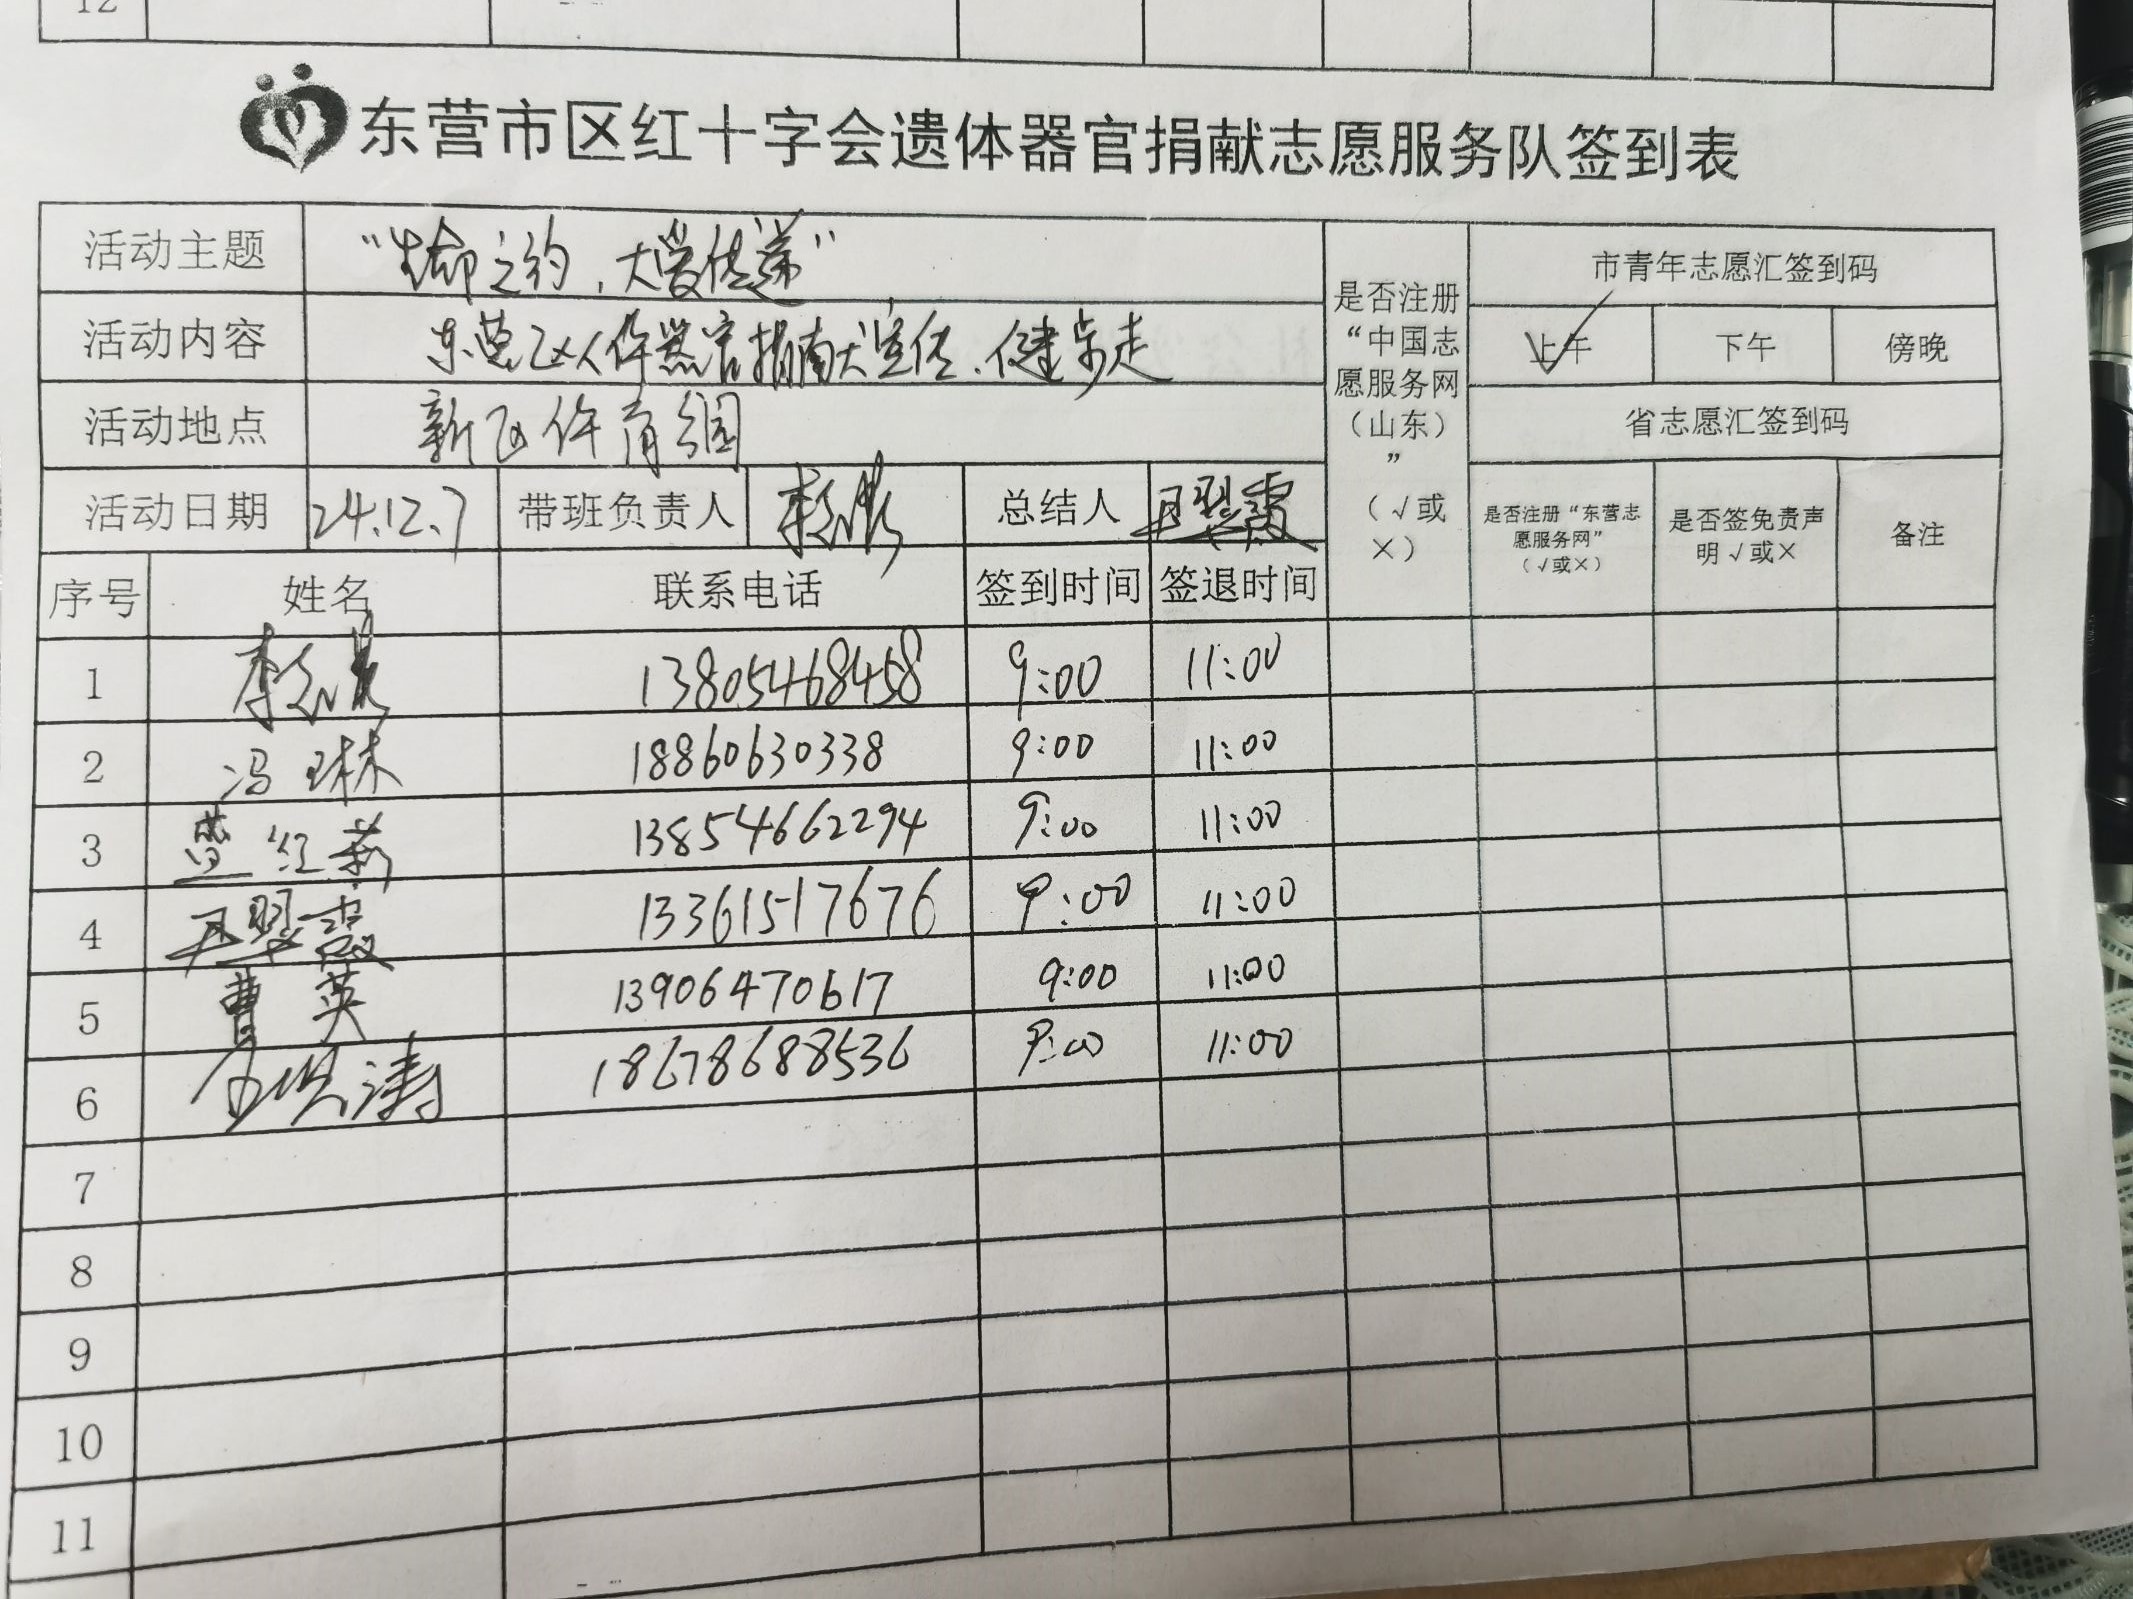 12
东营市区红十字会遗体器官捐献志愿服务队签到表
活动主题 “生命之约,大爱传递”
活动内容 东营区人体器官捐献宣传、健步走
活动地点 新区体育公园
是否注册“中国志愿服务网(山东)”(√或×)
市青年志愿汇签到码
上午 √ 下午 傍晚
省志愿汇签到码
活动日期 24.12.7 带班负责人 总结人 王翠霞
是否注册“东营志愿服务网”(√或×) 是否签免责声明√或× 备注
序号 姓名 联系电话 签到时间 签退时间
1 13805468458 9:00 11:00
2 冯琳 18860630338 9:00 11:00
3 红莉 13854662294 9:00 11:00
4 王翠霞 13361517676 9:00 11:00
5 曹英 13906470617 9:00 11:00
6 涛 18678688536 9:00 11:00
7
8
9
10
11